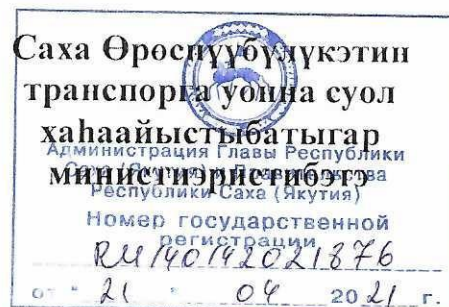 Саха Өрөспүүбүлүкэтин
транспорга уонна суол
хаһаайыстыбатыгар
Администрация Главы Республики
Саха (Якутия) и Правительства
министиэристибэтэ
Республики Саха (Якутия)
Номер государственной
регистрации
RU140142021876
от " 21 " 04 2021 г.